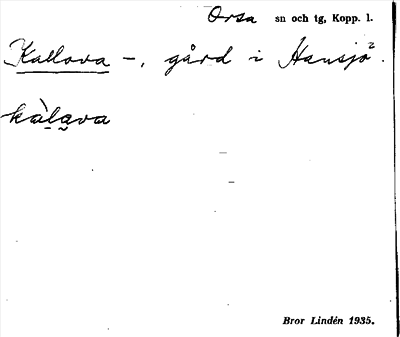 Orsa sn och tg, Kopp. l.
Kallova –, gård i Hansjö².
kàlava
Bror Lindén 1935.